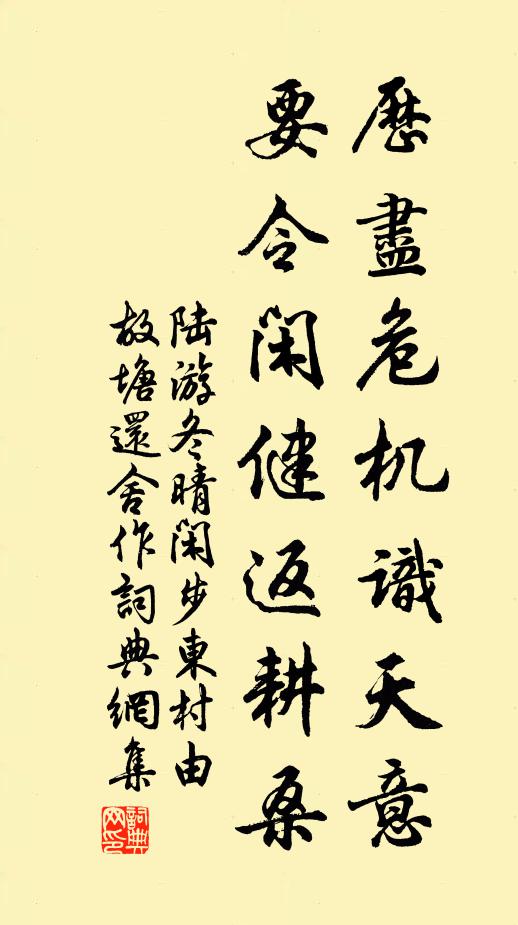 歷盡危机識天意
要令閑健返耕桑
陆游冬晴閑步東村由
故塘還舍作詞典網集
詞典网印